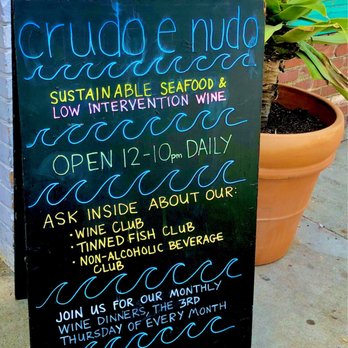 crudo e nudo
SUSTAINABLE SEAFOOD &
LOW INTERVENTION WINE
OPEN 12-10pm DAILY
ASK INSIDE ABOUT OUR:
• WINE CLUB
• TINNED FISH CLUB
• NON-ALCOHOLIC BEVERAGE
CLUB
JOIN US FOR OUR MONTHLY
WINE DINNERS, THE 3RD
THURSDAY OF EVERY MONTH